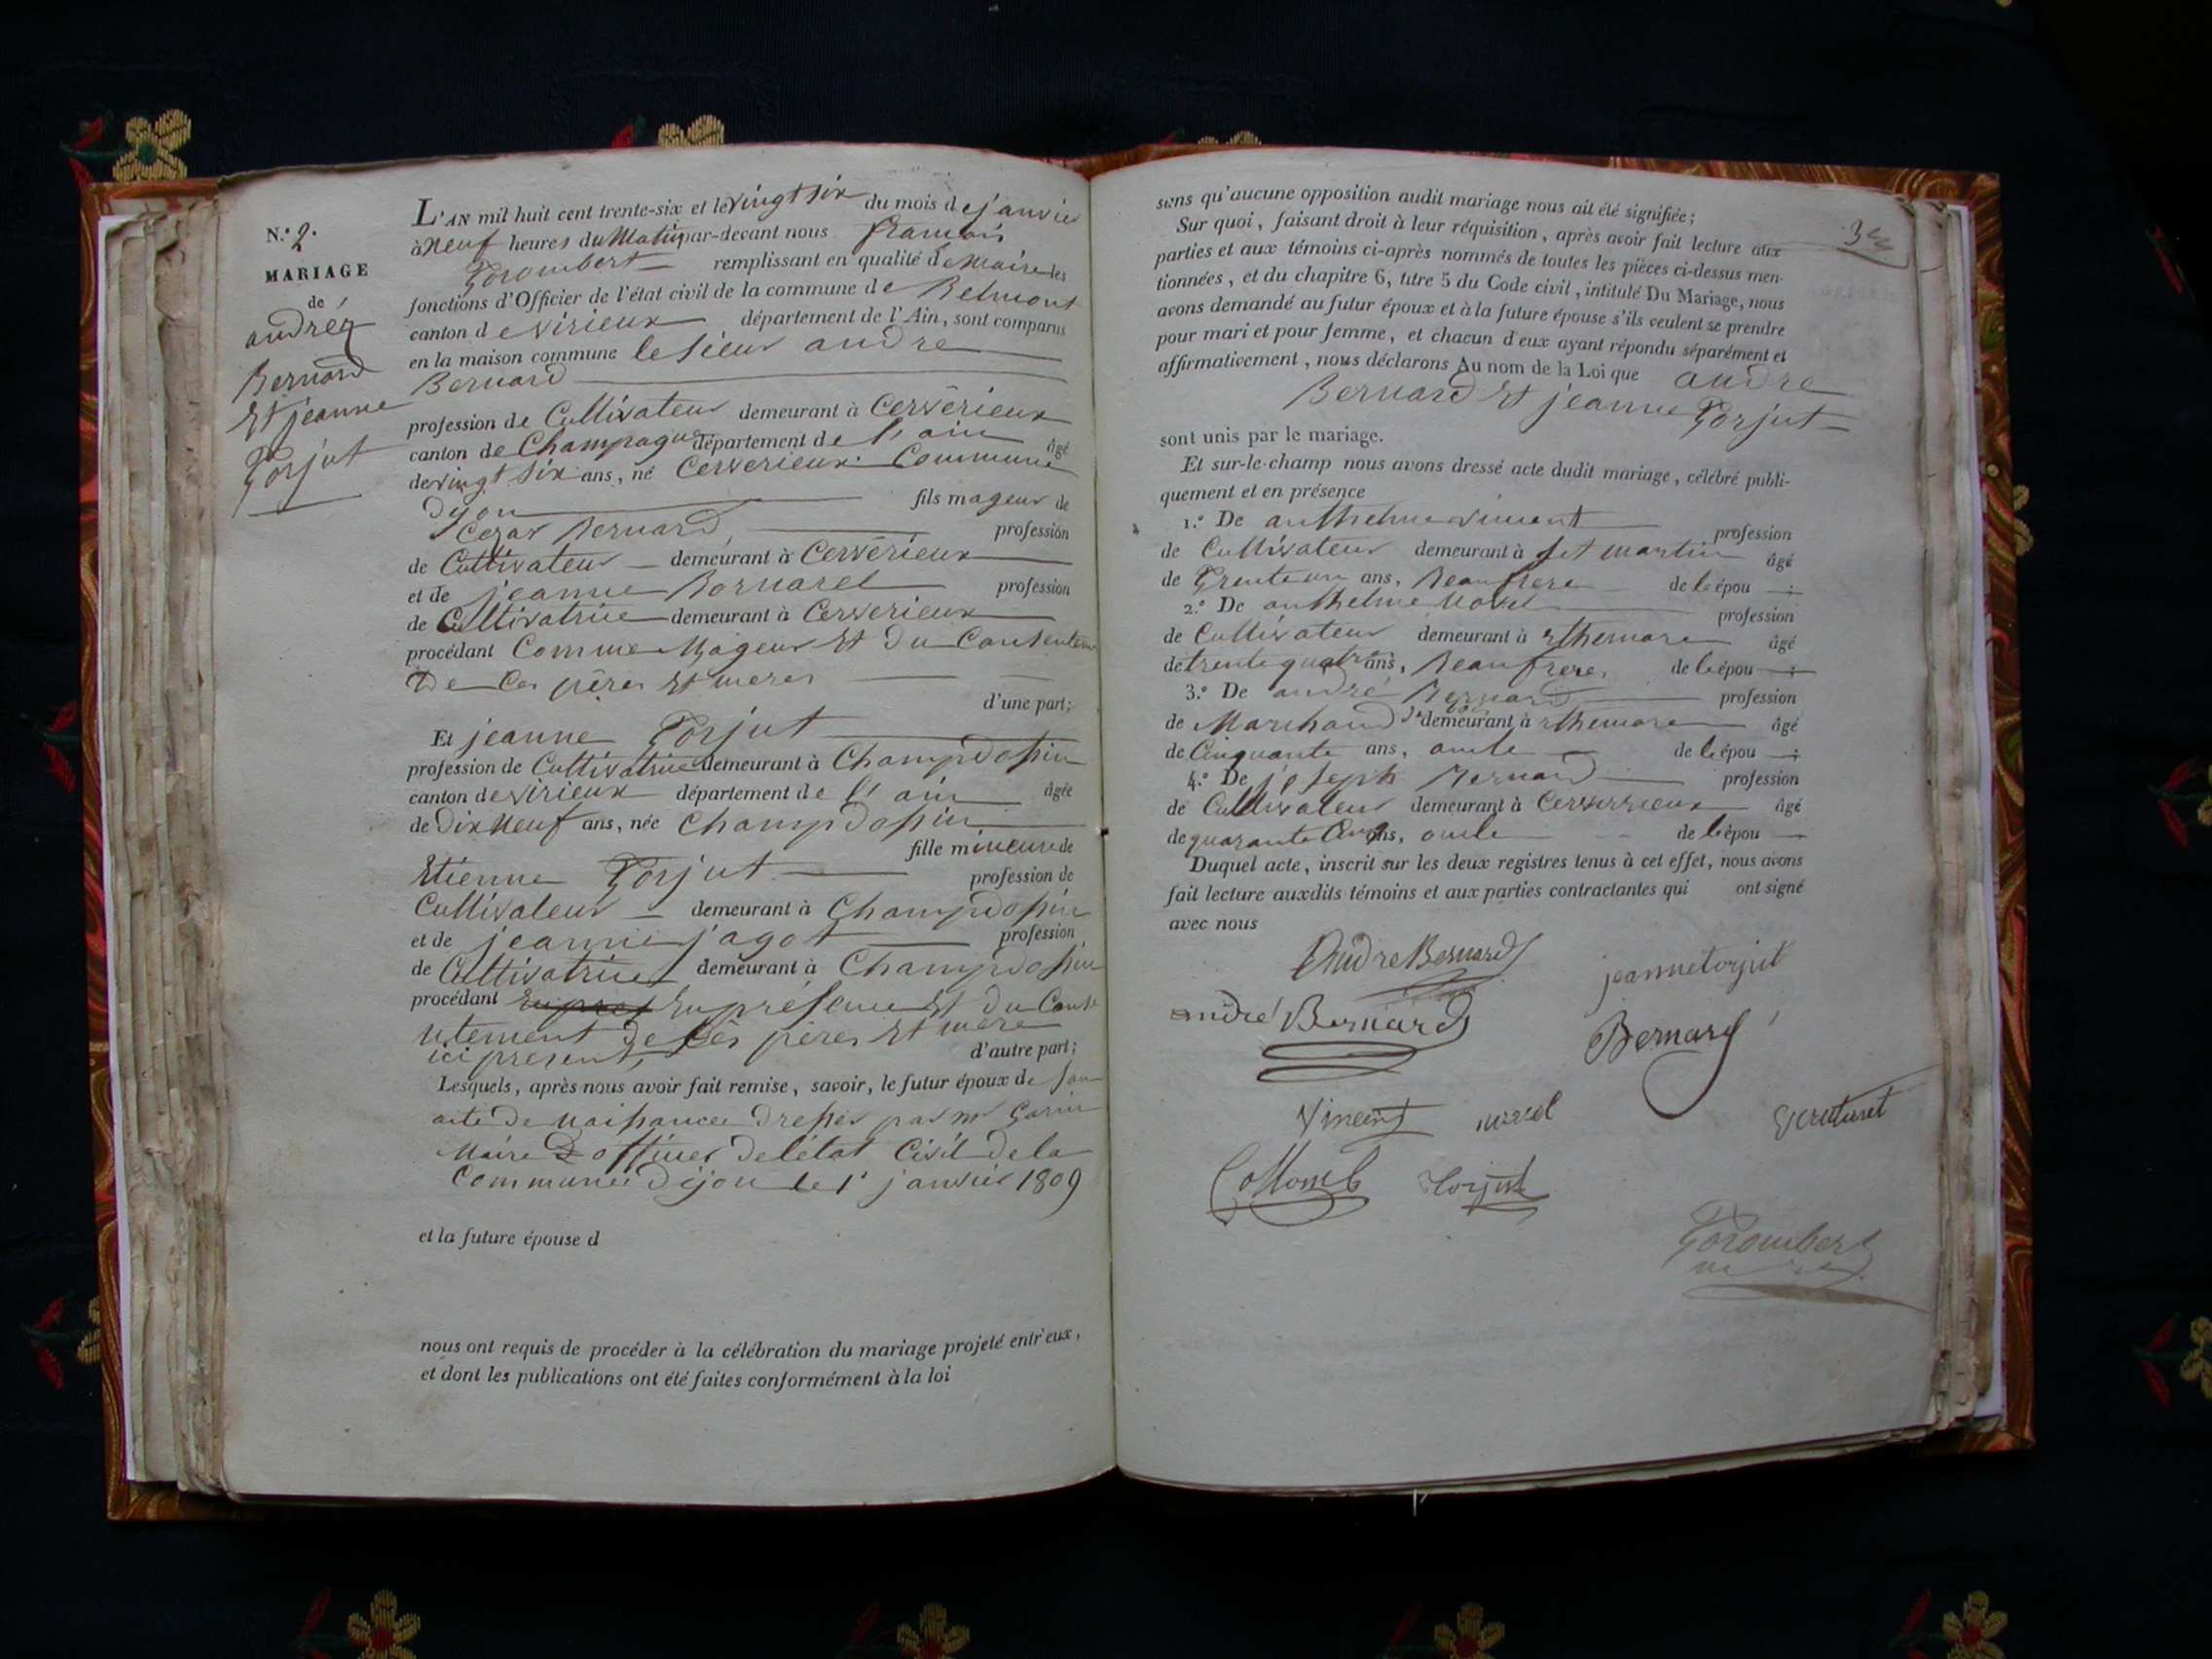 N.º 2.
MARIAGE
de
andréz
Bernard
Et jeanne
Torjut
L'AN mil huit cent trente-six et le vingt six du mois de janvier
à Neuf heures du Matin par-devant nous francois
Trombert remplissant en qualité de Maire les
fonctions d'Officier de l'état civil de la commune de Belmont
canton de virieux département de l'Ain, sont comparus
en la maison commune le Sieur andre
Bernard
profession de Cultivateur demeurant à Cerverieux
canton de Champagne département de l'ain âgé
de vingt six ans, né Cerverieux Commune
Dyon fils mageur de
Cezar Bernard profession
de Cultivateur demeurant à Cerverieux
et de jeanne Bornarel profession
de Cultivatrice demeurant à Cerverieux
procédant Comme Mageur Et du Consentem
De Ces pères Et meres
d'une part;
Et jeanne Torjut
profession de Cultivatrice demeurant à Champdossin
canton de virieux département de l'ain âgée
de Dix Neuf ans, née Champdossin
fille mineure de
Etienne Torjut profession de
Cultivateur demeurant à Champdossin
et de jeanne jagot profession
de Cultivatrice demeurant à Champdossin
procédant En presence Et du Conse
ntement de Ses pères Et mere
ici present, d'autre part;
Lesquels, après nous avoir fait remise, savoir, le futur époux de son
acte de Naissance Dresser par mr Garin
Maire officier de létat Civil de la
Commune Dijon le 1r janvier 1809
et la future épouse d
nous ont requis de procéder à la célébration du mariage projeté entr'eux,
et dont les publications ont été faites conformément à la loi
sans qu'aucune opposition audit mariage nous ait été signifiée;
Sur quoi, faisant droit à leur réquisition, après avoir fait lecture aux
parties et aux témoins ci-après nommés de toutes les pièces ci-dessus men-
tionnées, et du chapitre 6, titre 5 du Code civil, intitulé Du Mariage, nous
avons demandé au futur époux et à la future épouse s'ils veulent se prendre
pour mari et pour femme, et chacun d'eux ayant répondu séparément et
affirmativement, nous déclarons Au nom de la Loi que andre
Bernard Et jeanne Torjut
sont unis par le mariage.
Et sur-le-champ nous avons dressé acte dudit mariage, célébré publi-
quement et en présence
1.º De anthelme vincent profession
de Cultivateur demeurant à st martin âgé
de Trente un ans, Beaufrere de l'épou
2.º De anthelme Movel profession
de Cultivateur demeurant à Athemare âgé
de trente quatre ans, Beaufrere de l'épou
3.º De andré Bernard profession
de Marchand demeurant à Athemare âgé
de Cinquante ans, oncle de l'épou
4.º De joseph Bernard profession
de Cultivateur demeurant à Cerverieux âgé
de quarante Cinq ans, oncle de l'épou
Duquel acte, inscrit sur les deux registres tenus à cet effet, nous avons
fait lecture auxdits témoins et aux parties contractantes qui ont signé
avec nous
Andre Bernard
jeanne torjut
andré Bernard
Bernard
Vincent
Collomb
Torjut
Trombert